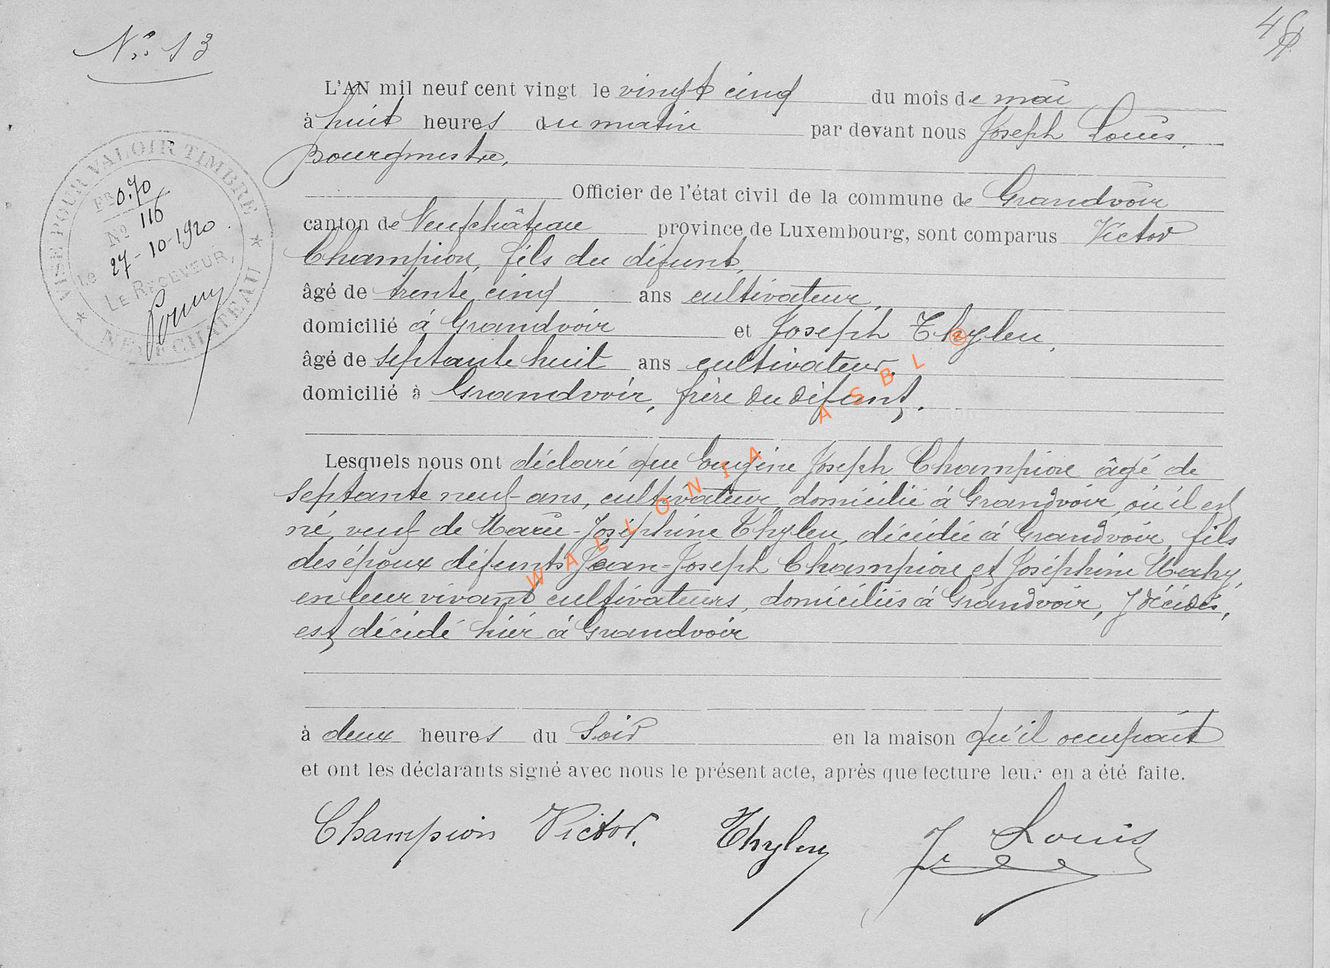 N° 13
48
L'AN mil neuf cent vingt le vingt cinq du mois de mai
à huit heures du matin par devant nous Joseph Louis,
Bourgmestre,
Officier de l'état civil de la commune de Grandvoir
canton de Neufchâteau province de Luxembourg, sont comparus Victor
Champion, fils du défunt,
âgé de trente cinq ans cultivateur,
domicilié à Grandvoir et Joseph Thyleu,
âgé de septante huit ans cultivateur,
domicilié à Grandvoir, frère du défunt,
Lesquels nous ont déclaré que Eugène Joseph Champion âgé de
septante neuf ans, cultivateur, domicilié à Grandvoir, où il est
né, veuf de Marie-Joséphine Thyleu, décédée à Grandvoir, fils
des époux défunts Jean-Joseph Champion et Joséphine Mahy
en leur vivant cultivateurs, domiciliés à Grandvoir, y décédés,
est décédé hier à Grandvoir
à deux heures du soir en la maison qu'il occupait
et ont les déclarants signé avec nous le présent acte, après que lecture leur en a été faite.
Champion Victor. Thyleu J. Louis
VISÉ POUR VALOIR TIMBRE
FR 0.70
N° 116
Le 27-10-1920
LE RECEVEUR,
NEUFCHATEAU
WALLONIA ASBL ®